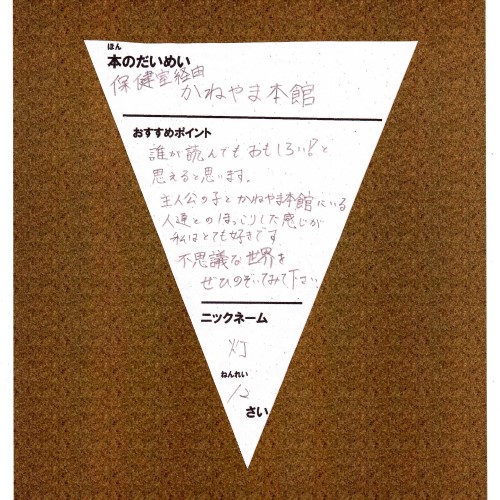 ほん
本のだいめい
保健室経由
かねやま本館
おすすめポイント
誰が読んでもおもしろい!と
思えると思います。
主人公の子とかねやま本館にいる
人達とのほっこりした感じが
私はとても好きです
不思議な世界を
ぜひのぞいてみて下さい
ニックネーム
灯
ねんれい
12
さい